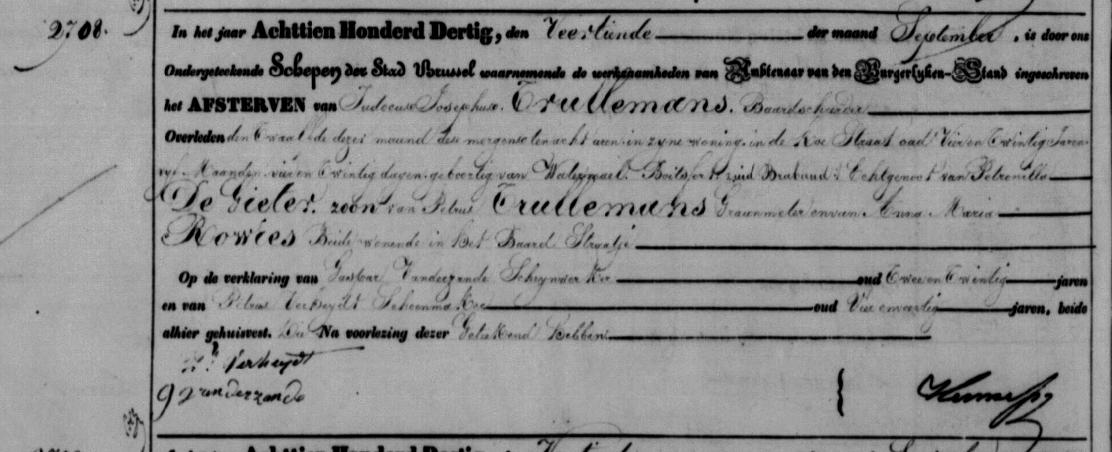 2708.
In het jaar Achttien Honderd Dertig, den Veertiende der maand September, is door ons
Ondergeteekende Schepen der Stad Brussel waarnemende de werkzaamheden van Ambtenaar van den Burgerlyken-Stand ingeschreven
het AFSTERVEN van Judocus Josephus Trullemans. Baardscheerder
Overleden den Twaalfde dezer maand des morgens ten acht uren in zyne woning in de Koe Straat oud Vier en Twintig Jaren
vyf Maanden vier en Twintig dagen geboortig van Watermael-Boitsfort zuid Braband Echtgenoot van Petronilla
De Gieter. zoon van Petrus Trullemans Graenmeter en van Anna Maria
Rowies Beide wonende in het Baard Straatje
Op de verklaring van Gaspar Vanderzande oud Twee en Twintig jaren
en van Petrus Verheydt Schoenmaker oud Vier en veertig jaren, beide
alhier gehuisvest. Die Na voorlezing dezer Geteekend Hebben
Verheydt
g Vanderzande
Achttien Honderd Dertig